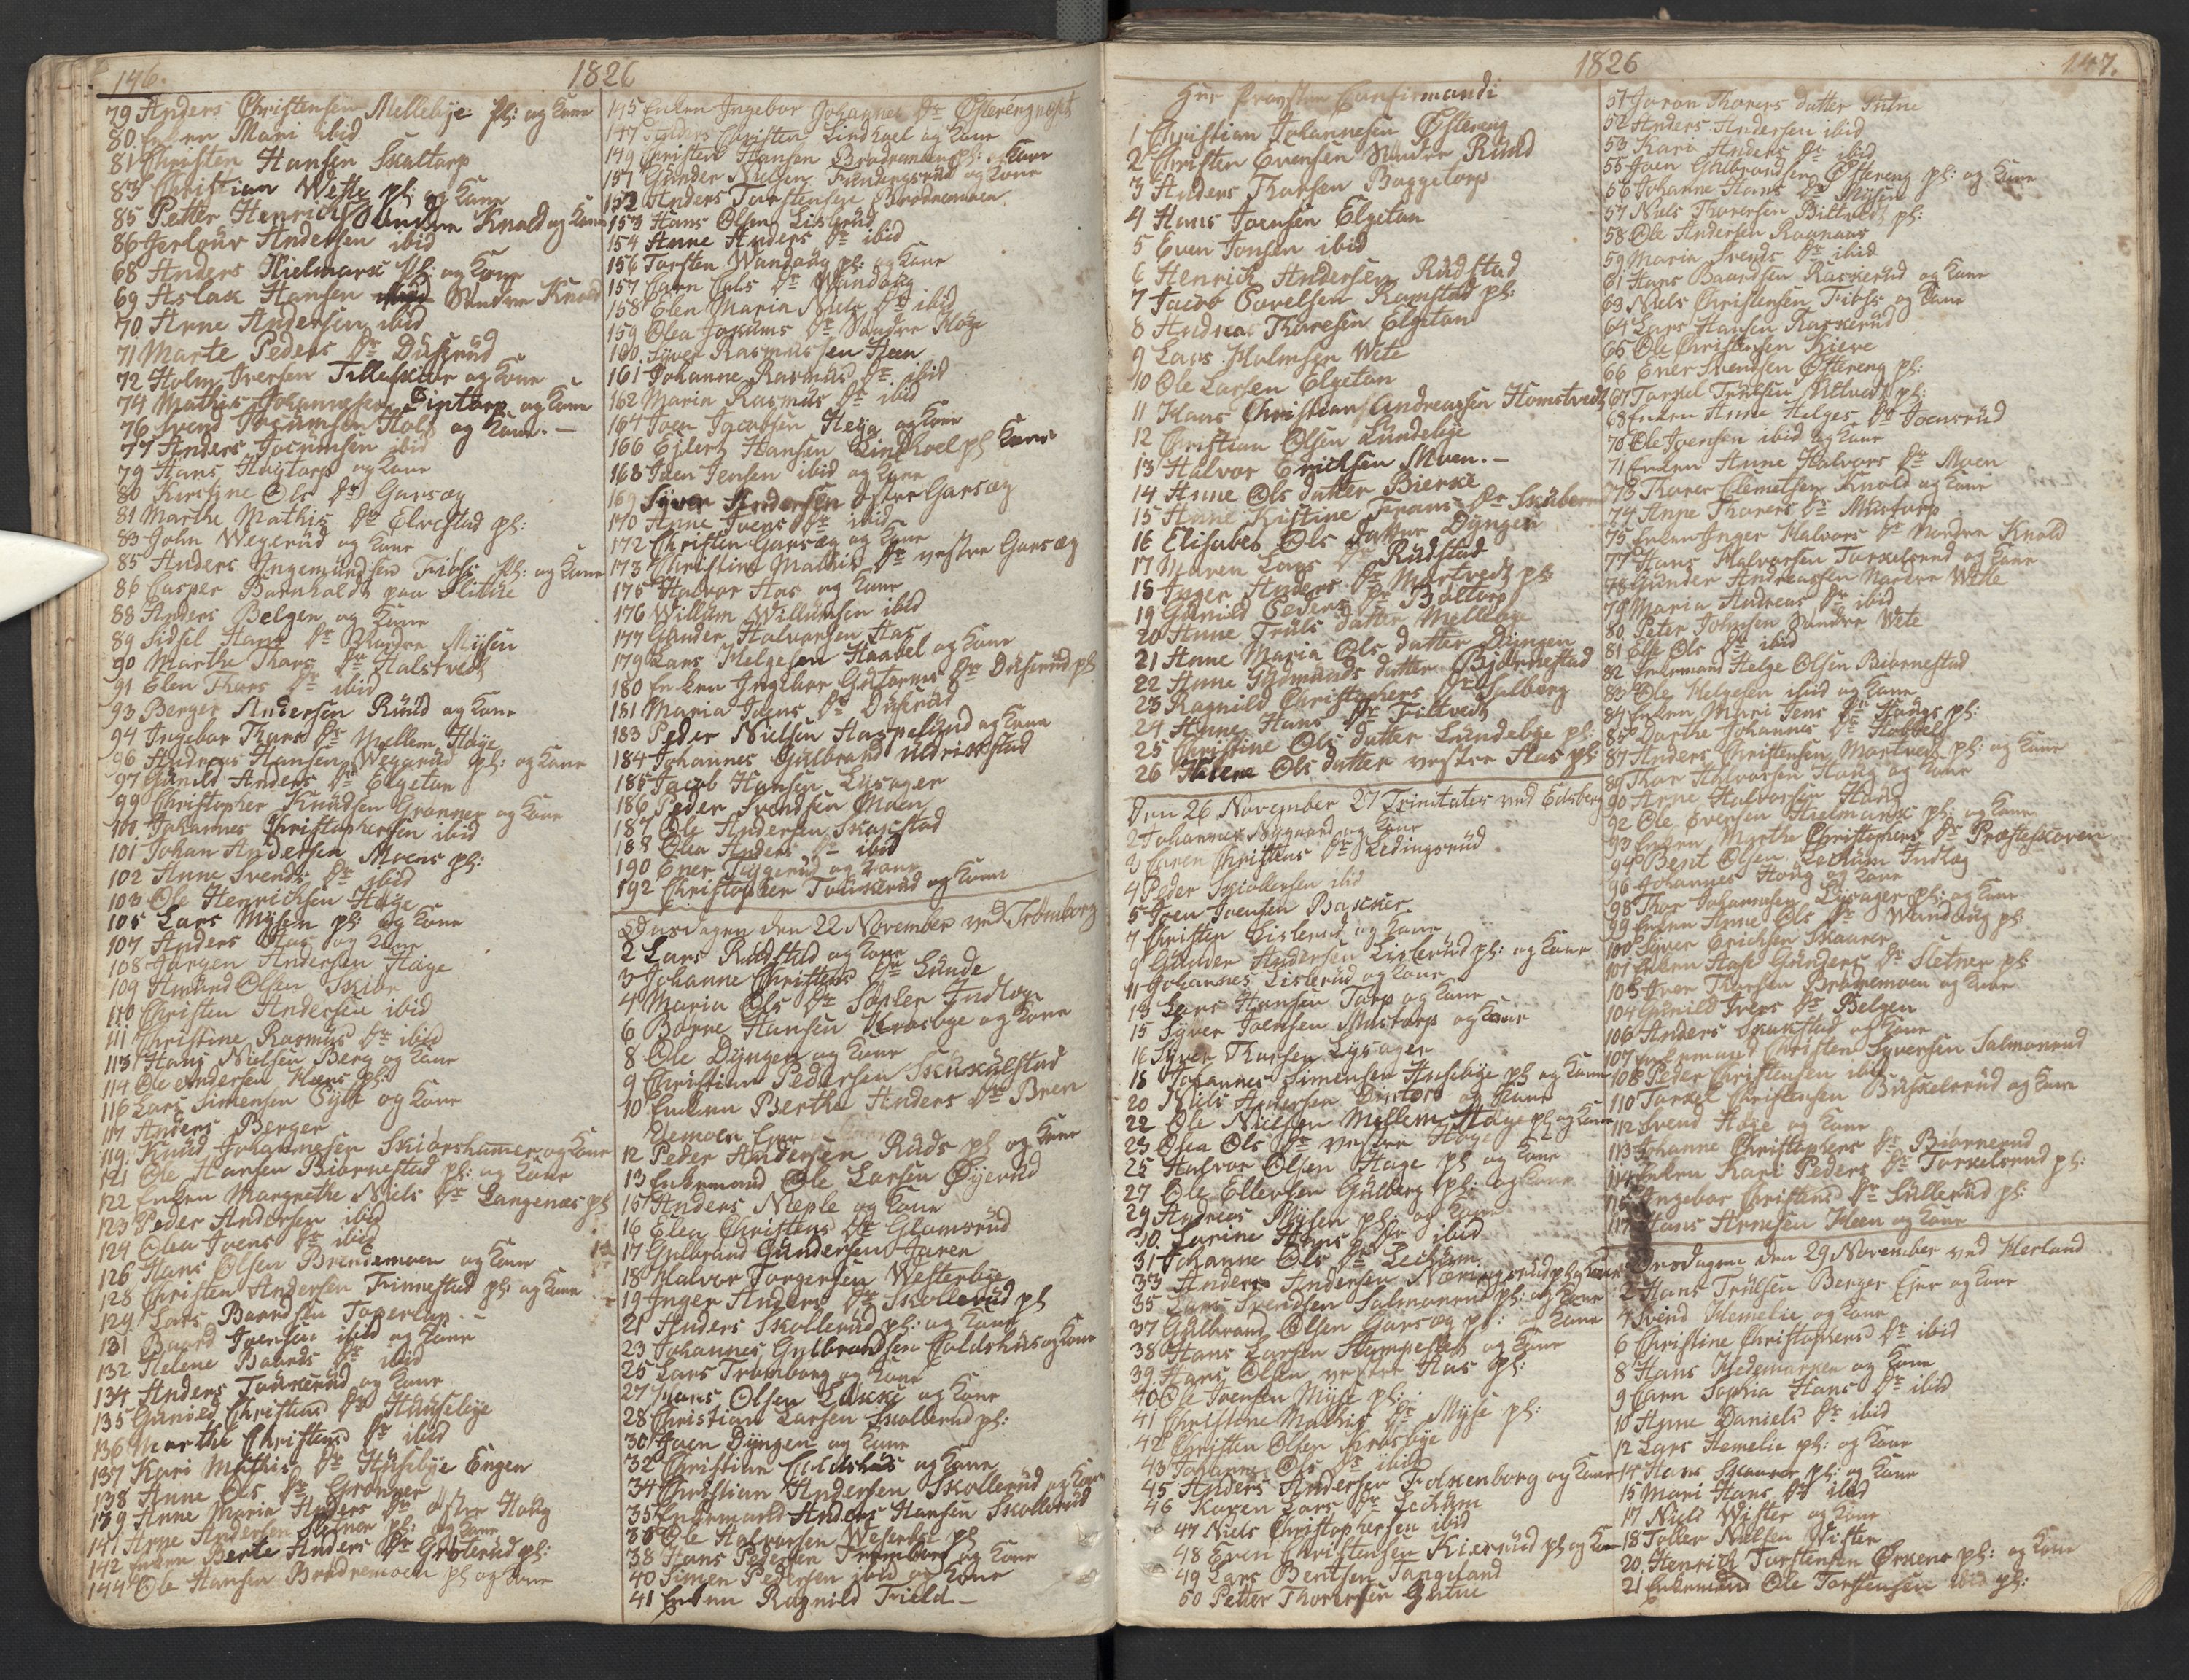 146.
1826
79 Anders Christensen Mellebÿe pl: og Kone
80. Enken Mari ibid
81 Christen Hansen Skaltorp
83 Christian Wette pl: og Kone
85 Petter Henrich Søndre Knold og Kone
86 Jerlouv Andersen ibid
68 Anders Hielmark pl: og Kone
69 Aslak Hansen Søndre Knold
70 Anne Andersen ibid
71 Marte Peders Dr Duserud
72 Holm Iversen Tilleskiør og Kone
74 Mathis Johannesen Sintorp og Kone
76 Svend Jocumsen Hols og Kone. –
77 Anders Jocumsen ibid
79 Hans Hagtorp og Kone
80 Kirstine Ols Dr Garseg
81 Marthe Mathis Dr Elvestad pl:
83 John Wegerud og Kone
85 Anders Ingemundsen Fibss pl: og Kone
86 Casper Barnholdt paa Slitue
88 Anders Belgen og Kone
89 Sidsel Hans Dr Søndre Mÿsen
90 Marthe Thors Dr Halstvedt
91 Elen Thors Dr ibid
93 Berger Andersen Ruud og Kone
94 Ingebor Thors Dr Mellem Høÿe
96 Andreas Hansen Wegerud pl: og Kone
97 Gunild Anders Dr Elgetun
99 Christopher Knudsen Grønner og Kone
100 Johannes Christophersen ibid
101 Johan Andersen Moens pl:
102 Anne Svends Dr ibid
103 Ole Henrichsen Høÿe
105 Lars Mÿsen pl: og Kone
107 Anders Aas og Kone
108 Jørgen Andersen Høÿe
109 Amund Olsen Skiør
110 Christen Andersen ibid
111 Christine Rasmus Dr ibid
113 Hans Nielsen Berg og Kone
114 Ole Andersen Heens pl:
116 Lars Simensen Gÿlt og Kone
117 Anders Berger
119. Knud Johannesen Skiørshamer og Kone
121 Ole Hansen Biørnestad pl: og Kone
122 Enken Margrethe Niels Dr Langenæs pl
123 Peder Andersen ibid
124 Olea Joens Dr ibid
126 Hans Olsen Brendemoen og Kone
128 Christen Andersen Finnestad pl: og Kone
129 Lars Baardsen Togerton
131 Baard Joensen ibid og Kone
132 Helene Baards Dr ibid
134 Anders Touserud og Kone
135 Gunild Christens Dr Huusebÿe
136 Marthe Christens Dr ibid
137 Kari Mathis Dr Husebÿe Engen
138 Anne Ols Dr Grønner
139 Anne Maria Anders Dr Østre Houg
141 Arne Andersen Sletner pl: og Kone
142 Enken Berte Anders Dr Grøterud pl:
144 Ole Hansen Brødremoen pl og Kone
145 Enken Ingebor Johannes Dr Østerengnøset
147 Anders Christen Lindhoel og Kone
149 Christen Hansen Brødremoen pl: og Kone
151 Gunder Nielsen Fundingsrud og Kone
152 Anders Torstensen Brødremoen
153 Hans Olsen Lislerud
154 Anne Anders Dr ibid
156 Torsten Wandaug pl: og Kone
157 Caren Ols Dr Wandaug
158 Elen Maria Niels Dr ibid
159 Olea Jocums Dr Søndre Høÿe
160. Siver Rasmussen Heen
161 Johanne Rasmus Dr ibid
162 Maria Rasmus Dr ibid
164 Joen Jacobsen Heÿa og Kone
166 Ejlert Hansen Lindhoel pl Kone
168 Joen Jensen ibid og Kone
169 Siver Andersen østre Garseg
170 Anne Joens Dr ibid
172 Christen Garseg og Kone
173 Christine Mathis Dr vestre Garseg
175 Halvor Aas og Kone
176 Willum Willumsen ibid
177 Gunder Halvorsen Aas
179 Lars Helgesen Haabel og Kone
180 Enken Ingebor Gutorms Dr Duserud pl
181 Maria Joens Dr Duserud
183 Peder Nielsen Haspelund og Kone
184 Johannes Gulbrand Uldrikstad
185 Jacob Hansen Lÿsager
186 Peder Svendsen Moen
187 Ole Andersen Skakstad
188 Olea Anders Dr ibid
190 Ener Tuggerud og Kone
192 Christopher Touserud og Kone
Onsdagen den 22 November ved Trømborg
2 Lars Rudstad og Kone
3 Johanne Christens Dr Lunde
4 Maria Ols Dr Søpler Indlog.
6 Borre Hansen Krosbÿe og Kone
8 Ole Dÿngen og Kone
9 Christian Pedersen Skukulstad
10 Enken Berthe Anders Dr Bren
demoen
12 Peder Andersen Ruds pl og Kone
13 Enkemand Ole Larsen Øÿerud
15 Anders Næple og Kone
16 Elea Christens Dr Glomsrud
17 Gulbrand Gundersen Jaren
18 Halvor Torgersen Westerbÿe
19 Inger Anders Dr Skollerud pl
21 Anders Skollerud pl: og Kone
23 Johannes Gulbrandsen Coldshus og Kone
25 Lars Tromborg og Kone
27 Hans Olsen Løkke og Kone
28 Christian Larsen Skollerud pl:
30 Joen Dÿngen og Kone
32 Christian Coldshus og Kone
34 Christian Andersen Skollerud og Kone
35 Enkemand Anders Hansen Skollerud
36 Ole Halvorsen Westerbÿe pl
38 Hans Pedersen Tromborg og Kone
40 Simen Pedersen ibid og Kone
41 Enken Ragnild Field –
1826
147.
Hrr Provsten Confirmandi
1 Christian Johannesen Østereng
2 Christen Evensen Søndre Rud
3 Anders Thorsen Baggetorp
4 Hans Joensen Elgetun
5 Even Jonsen ibid
6 Henrich Andersen Rudstad
7 Jacob Povelsen Ramstad pl:
8 Andreas Thoresen Elgetun
9 Lars Holmsen Wete
10 Ole Larsen Elgetun
11 Hans Christian Andreassen Homstvedt
12 Christian Olsen Lundebÿe
13 Halvor Erichsen Moen. –
14 Anne Ols datter Bierke
15 Anne Kistine Frans Dr Skuberud
16 Elisabes Ols datter Dÿngen
17 Maren Lars Dr Rudstad
18 Inger Anders Dr Mortvedt pl:
19 Gunild Peders Dr Boltorp
20 Anne Truls datter Mellebÿe
21 Anne Maria Ols datter Dÿngen
22 Anne Gudmunds datter Bjørnestad
23 Ragnild Christophers Dr Salberg
24 Anne Hans Dr Filtvedt
25 Christine Ols datter Lundebÿe pl:
26 Helene Ols datter vestre Aas pl:
Den 26 November 27 Trinitates ved Edsberg
2 Johannes Nÿgaard og Kone
3 Joren Christens Dr Ledingsrud
4 Peder Skiollersen ibid
5 Joen Joensen Bakker
7 Christen Lislerud og Kone
9 Gunder Andersen Lislerud pl: og Kone
11 Johannes Lislerud og Kone
13 Lars Hansen Torp og Kone
15 Sÿver Joensen Mustorp og Kone
16 Sÿver Thorsen Lÿsager
18 Johannes Simensen Husebÿe pl og Kone
20 Niels Andersen Sintorp og Kone
22 Ole Nielsen Mellem Høÿe pl og Kone
23 Olea Ols Dr vestre Høÿe
25 Halvor Olsen Høÿe pl og Kone
27 Ole Ellevsen Gulberg pl: og Kone
29 Andreas Mÿsen pl: og Kone
30. Karine Hans Dr ibid
31 Johanne Ols Dr Lechum
33 Anders Andersen Nœringsrud pl og Kone
35 Lars Svendsen Salmonrud pl: og Kone
37 Gulbrand Olsen Garseg pl: og Kone
38 Hans Larsen Stumpestet og Kone
39. Hans Olsen vestre Aas pl:
40 Ole Joensen Mÿse pl:
41 Christine Mathis Dr Mÿse pl:
42 Christen Olsen Krosbÿe
43 Johanne Ols Dr ibid
45 Anders Andersen Folkenborg og Kone
46 Karen Lars Dr Lechum
47 Niels Christophersen ibid
48 Even Christensen Kierrud pl og Kone
49 Lars Bentsen Tangeland
50 Petter Thoresen Gutue
51 Joran Thorers datter Gutue
52 Anders Andersen ibid
53 Kari Anders Dr ibid
55 Joen Gulbrandsen Østereng pl: og Kone
56 Johanne Hans Dr Mÿsen
57 Niels Thoresen Biltvedt pl:
58 Ole Andersen Raanaas
59 Maria Svends Dr ibid
61 Hans Baardsen Raskerud og Kone
63 Niels Christensen Fibss og Kone
64 Lars Hansen Raskerud
65 Ole Christensen Kieve
66 Ener Svendsen Østereng pl:
67 Torkel Trulsen Utvedt pl:
68 Enken Anne Helges Dr Joensrud
70 Ole Joensen ibid og Kone
71 Enken Anne Halvors Dr Moen
73 Thorer Clemetsen Knold og Kone
74 Anne Thorers Dr Mustorp
75 Enken Inger Halvors Dr Nordre Knold
77 Hans Halvorsen Torkelsrud og Kone
78 Gunder Andreassen Nordre Wete
79 Maria Andreas Dr ibid
80 Peter Johnsen Søndre Wete
81 Else Ols Dr ibid
82 Enkemand Helge Olsen Biørnestad
83 Ole Helgesen ibid og Kone
84 Enken Mari Jens Dr Hougs pl:
85 Dorthe Johannes Dr Hobbels
87 Anders Christensen Mortvedt pl: og Kone
89 Thor Halvorsen Houg og Kone
90 Arne Halvorsen Houg
92 Ole Evensen Hielmark pl: og Kone
93 Enken Marthe Christophers Dr Præsteskoven
94 Berit Olsen Lechum Indlog
96 Johannes Houg og Kone
98 Thor Johannesen Lÿsager pl: og Kone
99 Enken Anne Ols Dr Wandaug pl
100 Sÿver Erichsen Skaarer
101 Enken Aase Gunders Dr Sletner pl
103 Iver Thorsen Brødremoen og Kone
104 Gunild Ivers Dr Belgen
106 Anders Skakstad og Kone
107 Enkemand Christen Syversen Salmonrud
108 Peder Christensen ibid
110 Torkel Christensen Buskelsrud og Kone
112 Svend Høÿe og Kone
113 Johanne Christophers Dr Biørnerud
114 Enken Kari Peders Dr Torkelsrud pl:
115 Ingebor Christens Dr Sullerud pl:
117 Hans Arnesen Heen og Kone
Onsdagen den 29 November ved Herland
2 Hans Trulsen Berger Ejer og Kone
4 Svend Hemelie og Kone
6 Christine Christophers Dr ibid
8 Hans Hedemarken og Kone
9 Caren Sophia Hans Dr ibid
10 Anne Daniels Dr ibid
12 Lars Hemelie pl: og Kone
14 Hans Skaarer pl: og Kone
15 Mari Hans Dr ibid
17 Niels Wister og Kone
18 Toller Nielsen Wister
20. Henrich Torstensen Ørkene pl: og Kone
21 Enkemand Ole Torstensen ibid pl: